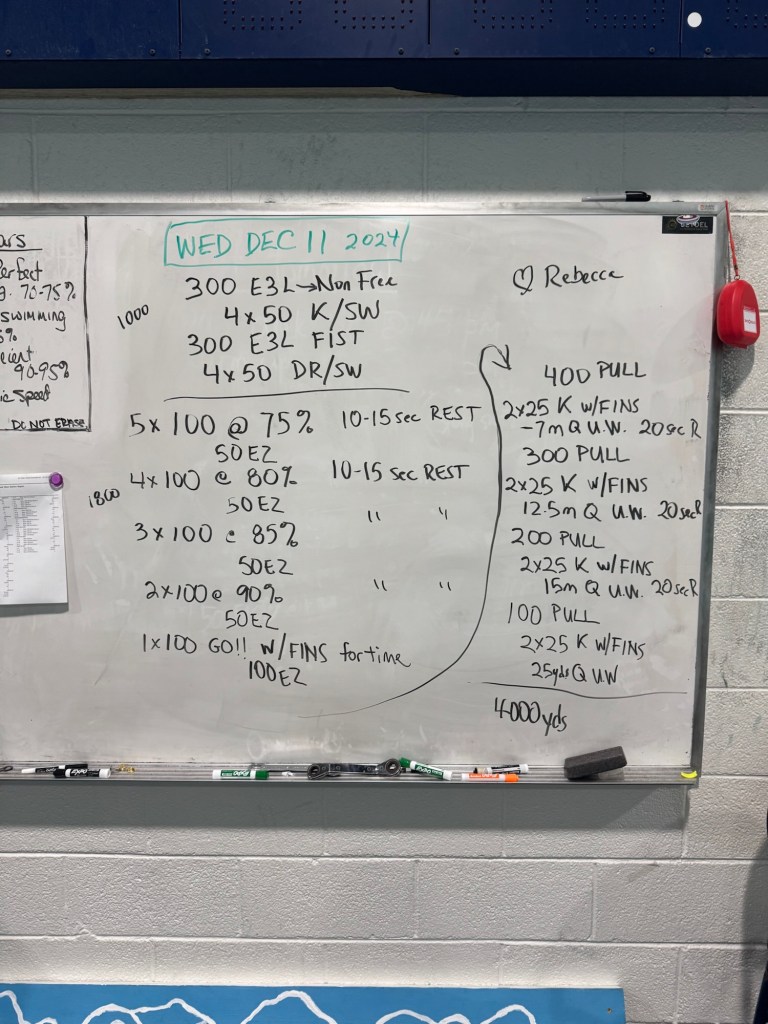 ars
Perfect
70-75%
swimming
5%
90-95%
Speed
DO NOT ERASE
WED DEC 11 2024
1000
300 E3L→Non Free
4x50 K/SW
300 E3L FIST
4x50 DR/SW
1800
5x100 @ 75% 10-15 sec REST
50EZ
4x100 @ 80% 10-15 sec REST
50EZ " "
3x100 @ 85%
50EZ
2x100@ 90% " "
50EZ
1x100 GO!! W/FINS for time
100EZ
♡ Rebecca
400 PULL
2x25 K W/FINS
-7m Q U.W. 20sec R
300 PULL
2x25 K W/FINS
12.5m Q U.W. 20sec R
200 PULL
2x25 K W/FINS
15m Q U.W. 20sec R
100 PULL
2x25 K W/FINS
25yds Q UW
4000yds